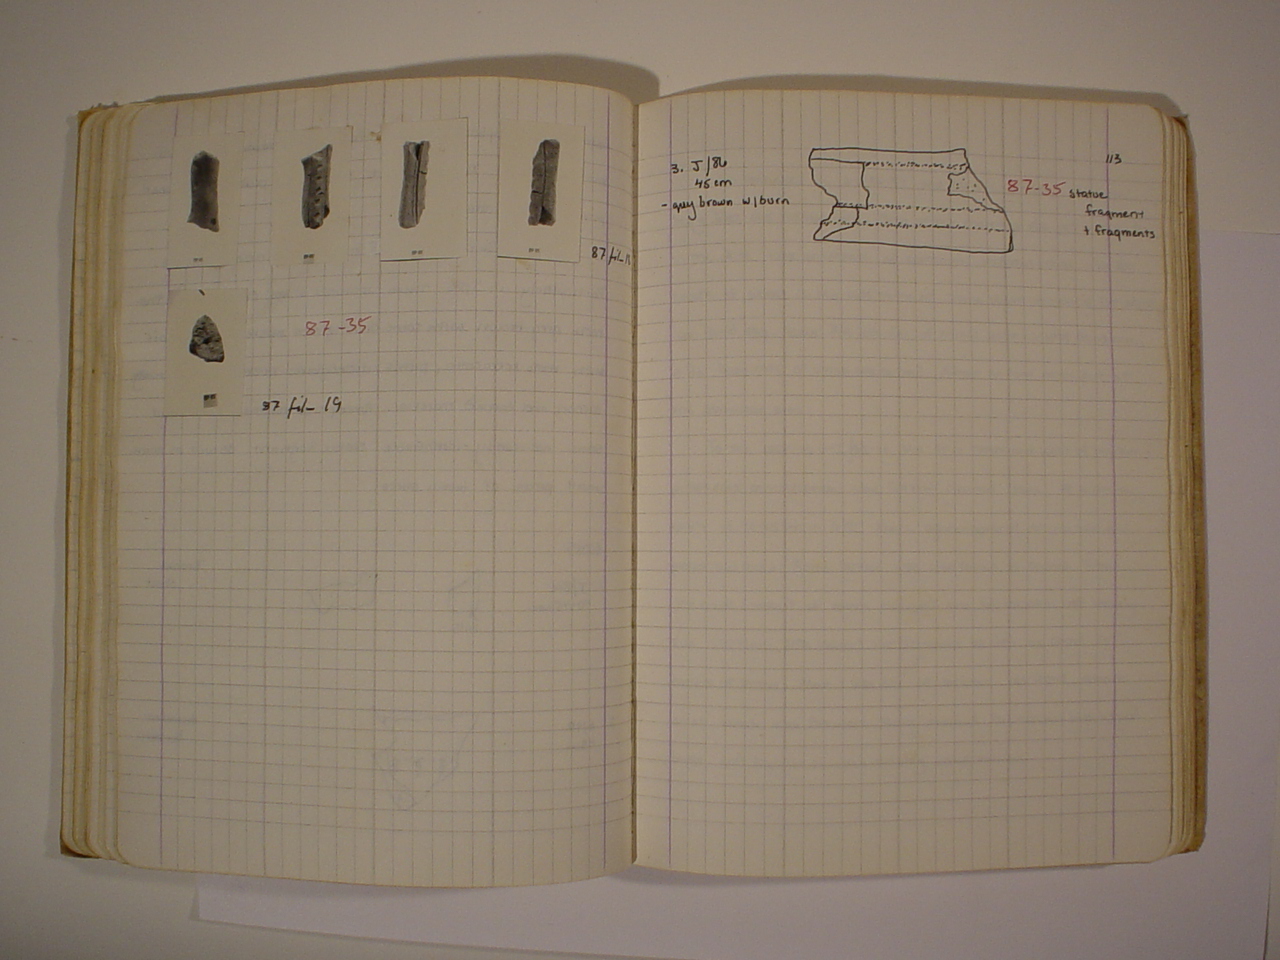 87 fil-
87-35
87 fil- 19
113
3. J/86
45 cm
- grey brown w/burn
87-35 statue
fragment
+ fragments